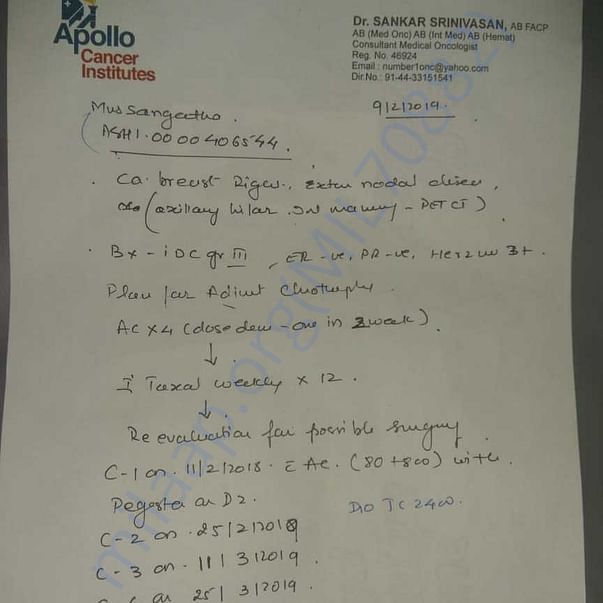 Apollo
Cancer
Institutes
Dr. SANKAR SRINIVASAN, AB FACP
AB (Med Onc) AB (Int Med) AB (Hemat)
Consultant Medical Oncologist
Reg. No. 46924
Email : number1onc@yahoo.com
Dir.No.: 91-44-33151541
9/2/2019.
Mrs Sangeetha.
ASH1.0000406544.
. Ca. breast nodal
(axillary hilar Int mammy - PET CT)
. Bx - IDC gr III, ER -ve, PR -ve, Her2neu 3+.
Plan for
AC x 4 (dose dense - one in 2 week)
↓
Taxol weekly x 12.
↓
Re evaluation for possible surgery
C-1 on 11/2/2018. AC. (80+800) with.
on D2.
DO TC 2400.
C-2 on 25/2/2019
C-3 on 11/3/2019.
25/3/2019.
milaap.org(MIL70882)